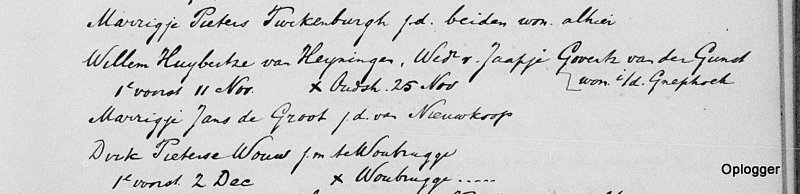 Marrigje Pieters Turkenburgh j.d. beiden won. alhier
Willem Huybertze van Heyningen, Wedr v. Jaapje Goverts van der Gunst
1e voorst 11 Nov. x Oudsh. 25 Nov won. i/d. Gnephoek
Marrigje Jans de Groot j.d. van Nieuwkoop
Dirk Pieterse Wouw j.m te Woubrugge
1e voorst 2 Dec x Woubrugge .....
Oplogger